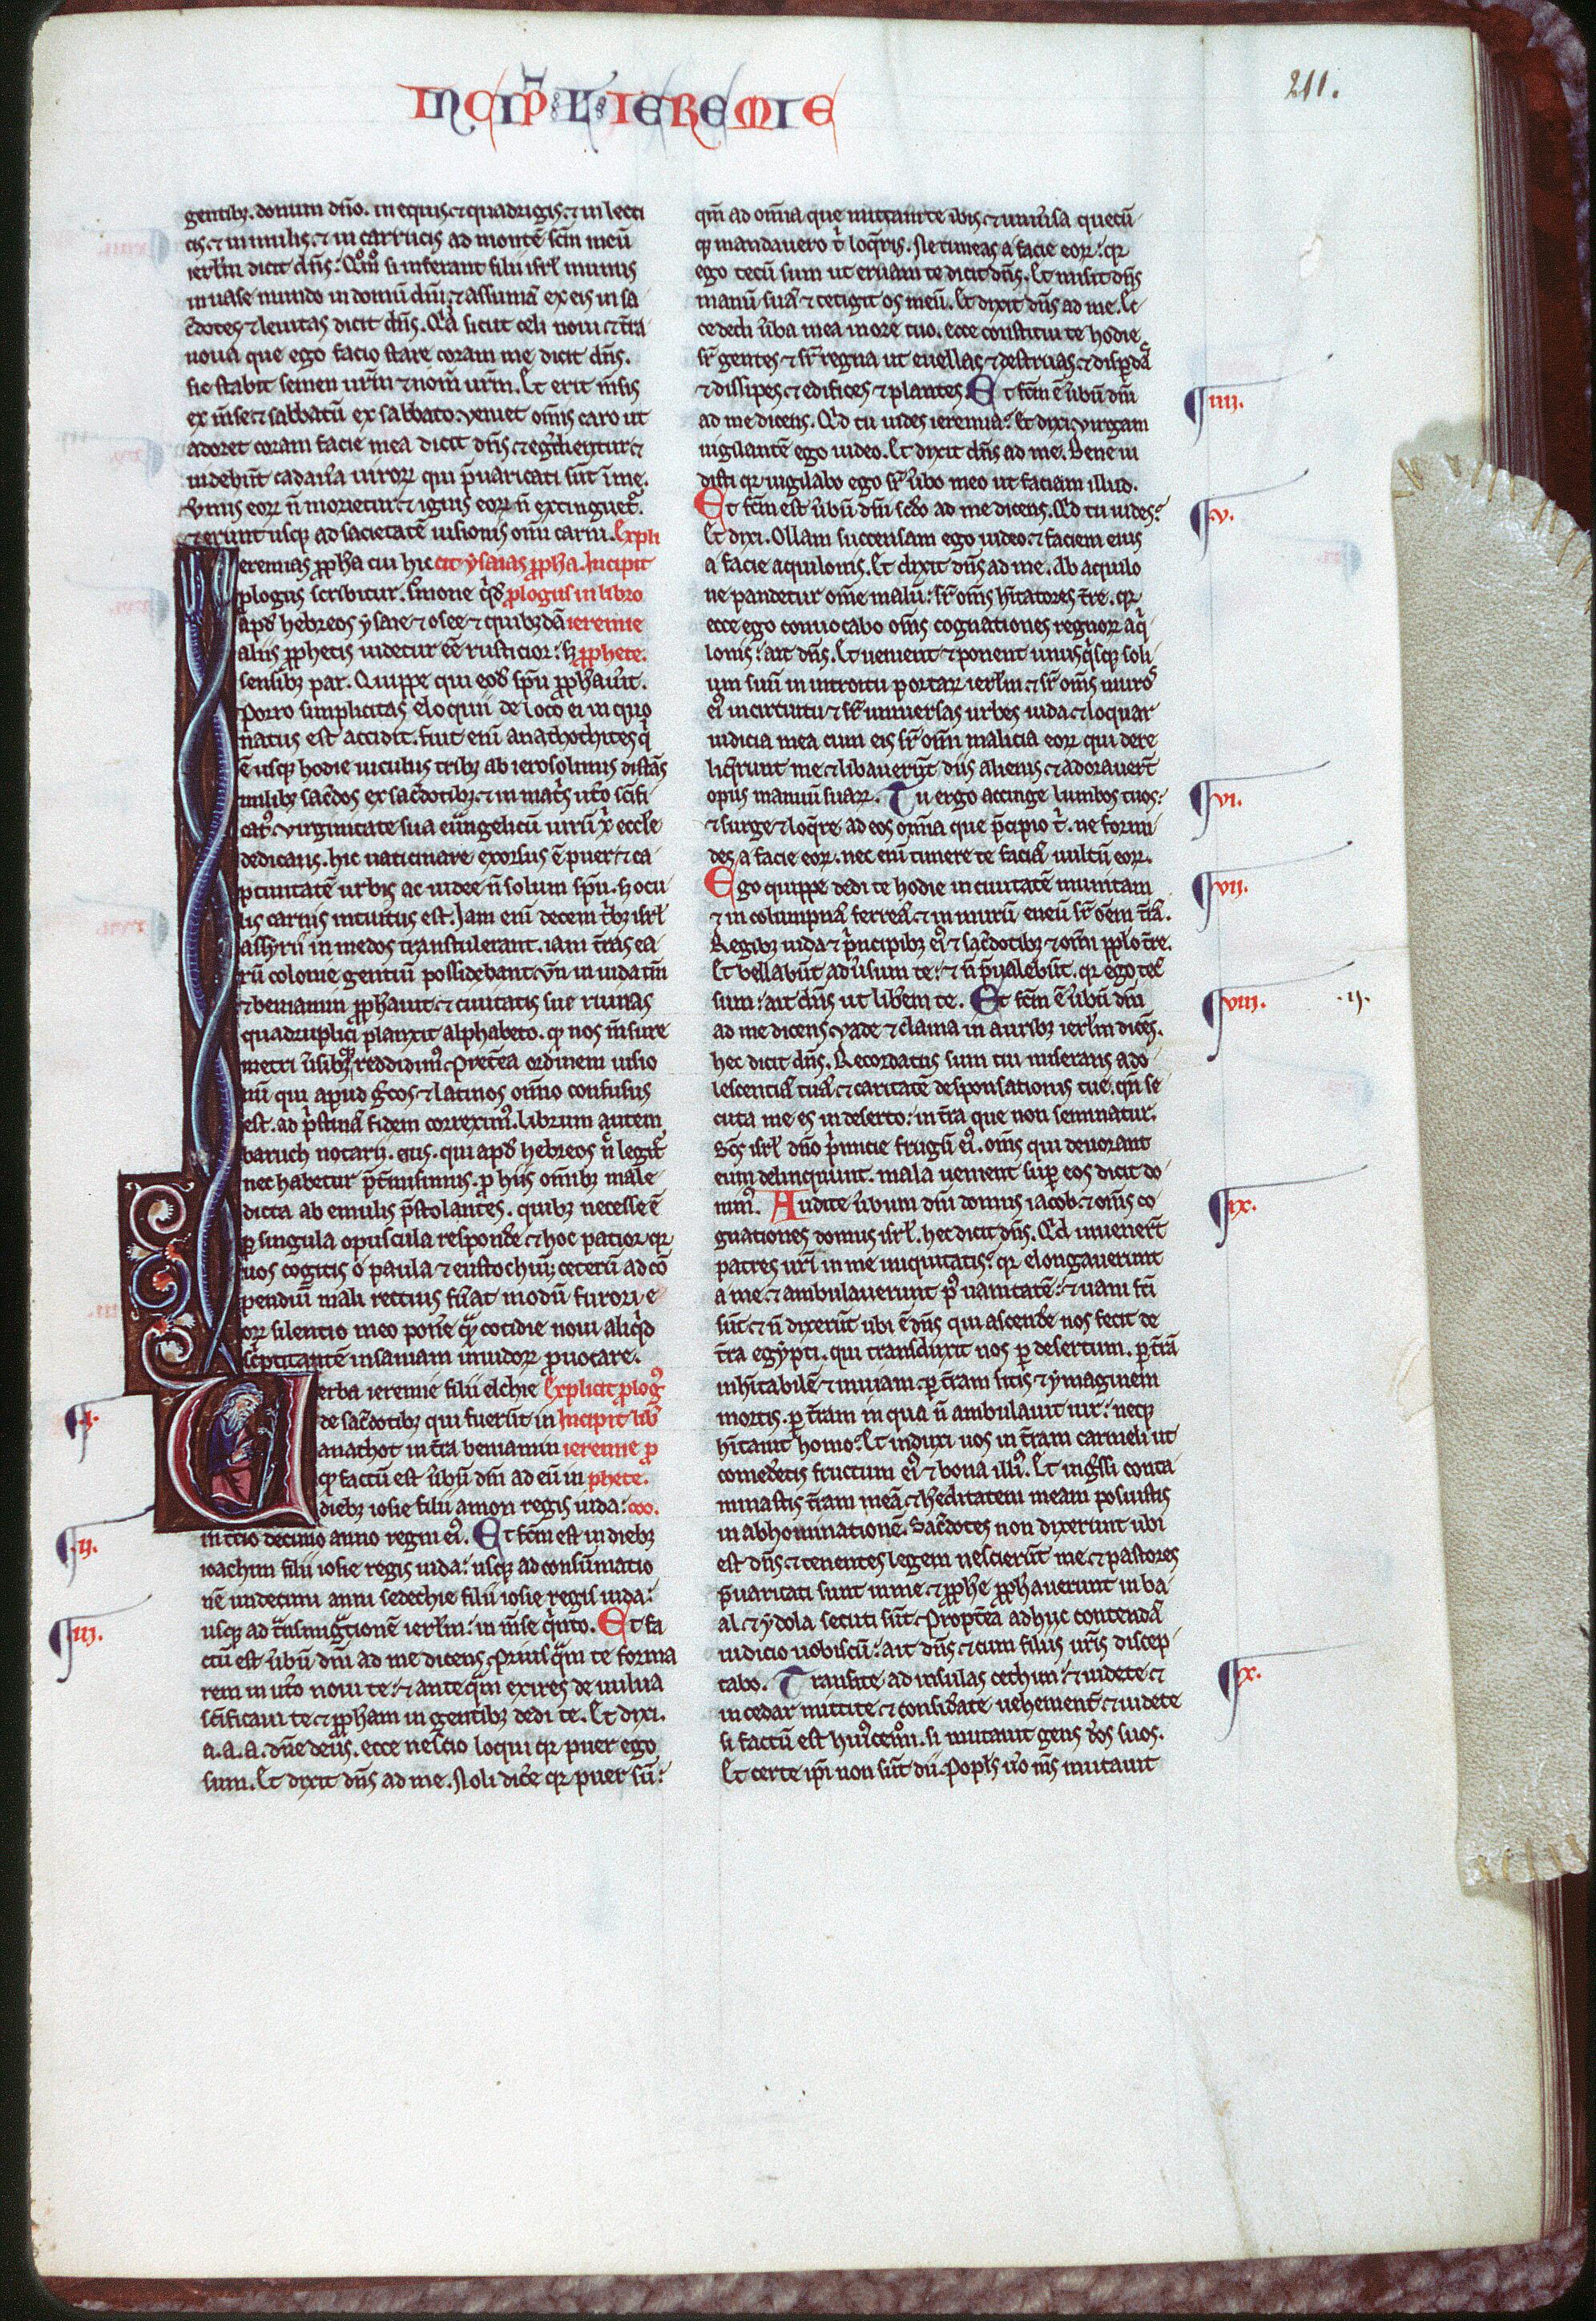 INCIP̃ · L̃ · IEREMIE
211.
gentib⁊. donum dño. in equis ⁊ quadrigis. ⁊ in lecti
cis. ⁊ in mulis. ⁊ in carrucis ad montē sc̃m meū
ierl̃m dicit dñs. Qͦm̊ si inferant filii isrl̃ munus
in uase mundo in domū dñi. ⁊ assumā ex eis in sa
c̃dotes ⁊ leuitas dicit dñs. Qͥa sicut celi noui ⁊ t̃ra
noua que ego facio stare coram me dicit dñs.
sic stabit semen ur̃m ⁊ nom̃ ur̃m. Et erit m̃sis
ex m̃se. ⁊ sabbatū ex sabbato. ueniet om̃is caro ut
adoret coram facie mea dicit dñs ⁊ eg̃dientur ⁊
uidebūt cadau̾a uiroꝝ qui p̃uaricati sūt ī me.
Vmis eoꝝ ñ morietur. ⁊ ignis eoꝝ ñ extinguet̃.
⁊ erunt usqꝫ ad sacietatē uisionis om̃i carni. Expli
Ieremias ꝓpha cui hic cit ysaias ꝓpha. Incipit
plogus scribitur. s̃mone q̾d̾ plogus in libro
apd̾ hebreos ysaie ⁊ osee ⁊ quibꝫdā ieremie
aliis ꝓphetis uidetur eē rusticior. sꝫ ꝓphete.
sensibꝫ par. Quippe qui eod̾ sp̃u ꝓphau̾it.
Porro simplicitas eloquii de loco ei in quo
natus est accidit. fuit eni anathothites q̾
ē usqꝫ hodie uiculus tribꝫ ab ierosolimis distās
milibꝫ sac̃dos ex sac̃dotibꝫ. ⁊ in mat̾s ut̾o sc̃ifi
cat̾. uirginitate sua eu̾ngelicū uirū xp̃i ecc̃le
dedicans. hic uaticinare exorsus ē puer. ⁊ ca
ptiuitatē urbis ac iudee ñ solum sp̃u. sꝫ ocu
lis carnis intuitus est. Iam eni decem t̾bꝫ isrl̃
assyrii in medos transtulerant. iam t̃ras ea
rū colonie gentiū possidebant. Vñ in iuda t̃m
⁊ beniamin ꝓphauit. ⁊ ciuitatis sue ruinas
quadruplici planxit alphabeto. qꝫ nos m̃sure
metri u̾sibꝫqꝫ reddidim̾. Pret̾ea ordinem uisio
nū qui apud g̃cos ⁊ latinos om̃io confusus
est. ad p̾stinā fidem correxim̾. Librum autem
baruch notarii. eius. qui apd̾ hebreos ñ legit̾
nec habetur p̃t̾misimus. p hiis om̃ibꝫ male
dicta ab emulis p̃stolantes. quibꝫ necesse ē
ꝑ singula opuscula respond̾e. ⁊ hoc patior qꝛ
uos cogitis o paula ⁊ eustochiū; ceterū ad cō
pendiū mali rectius fu̾at modū furori e
oꝝ silentio meo pon̾e qͣ cotidie noui aliq̾d
sc̾ptitantē insaniam inuidoꝝ puocare.
Verba ieremie filii elchie Explicit plog̾
de sac̃dotibꝫ qui fuerūt in Incipit lib̾
anathot in t̃ra beniamin ieremie ꝓ
qꝫ factū est ūbū dñi ad eū in phete.
diebꝫ iosie filii amon regis iuda:
in t̾cio decimo anno regni ei̾. Et fc̃m est in diebꝫ
ioachim filii iosie regis iuda: usqꝫ ad consūmatio
nē undecimi anni sedechie filii iosie regis iuda:
usqꝫ ad t̾nsmigͣtionē ierl̃m: in m̃se q̾nto. Et fa
ctū est ūbū dñi ad me dicens. Priusqͣm te forma
rem in ut̾o noui te: ⁊ anteqͣm exires de uulua
sc̃ificaui te ⁊ ꝓpham in gentibꝫ dedi te. Et dixi.
a. a. a. dñe deus. ecce nescio loqui qꝛ puer ego
sum. Et dixit dñs ad me. Noli dic̾e qꝛ puer sū:
qm̃ ad om̃ia que mittam te ibis. ⁊ uniu̾sa quecū
qꝫ mandauero t̾ loq̃ris. Ne timeas a facie eoꝝ: qꝛ
ego tecū sum ut eruam te dicit dñs. Et misit dñs
manū suā ⁊ tetigit os meū. Et dixit dñs ad me. Ec
ce dedi ūba mea in ore tuo. ecce constitui te hodie
sr̃ gentes ⁊ sr̃ regna ut euellas ⁊ destruas. ⁊ disꝑdas
⁊ dissipes. ⁊ edifices ⁊ plantes. Et fc̃m ē ūbū dñi
ad me dicens. Qͥd tu uides ieremia: Et dixi. uirgam
uigilantē ego uideo. Et dixit dñs ad me. Bene ui
disti qꝛ uigilabo ego sr̃ ūbo meo ut faciam illud.
Et fc̃m est ūbū dñi sc̃do ad me dicens. Qͥd tu uides:
Et dixi. Ollam succensam ego uideo. ⁊ faciem eius
a facie aquilonis. Et dixit dñs ad me. Ab aquilo
ne pandetur om̃e malū: sr̃ om̃is h̃itatores t̃re. qꝛ
ecce ego conuocabo om̃is cognationes regnoꝝ aq̾
lonis: ait dñs. Et uenient ⁊ ponent unusq̾sqꝫ soli
um suū in introitu portaꝝ ierl̃m ⁊ sr̃ om̃is muros
ei̾ in circuitu ⁊ sr̃ uniuersas urbes iuda ⁊ loquar
iudicia mea cum eis sr̃ om̃i malicia eoꝝ qui dere
liq̃runt me ⁊ libauerūt diis alienis ⁊ adorauert̃
opus manuū suaꝝ. Tu ergo accinge lumbos tuos:
⁊ surge ⁊ loq̃re ad eos omnia que p̃cipio t̾. ne formi
des a facie eoꝝ. nec eni timere te faciā uultū eoꝝ.
Ego quippe dedi te hodie in ciuitatē munitam
⁊ in columpnā ferreā. ⁊ in murū eneū sr̃ om̃em t̃rā.
Regibꝫ iuda ⁊ p̾ncipibꝫ ei̾ ⁊ sac̃dotibꝫ ⁊ om̃i pp̃lo t̃re.
Et bellabūt adu̾sum te: ⁊ ñ p̃ualebūt. qꝛ ego tecū
sum: ait dñs ut lib̾em te. Et fc̃m ē ūbū dñi
ad me dicens. Vade ⁊ clama in auribꝫ ierl̃m dicēs.
hec dicit dñs. Recordatus sum tui miserans ado
lescenciā tuā. ⁊ caritatē desponsationis tue. qn̄ se
cuta me es in deserto: in t̃ra que non seminatur.
Sc̃s isrl̃ dño p̾micie frugū ei̾. om̃is qui deuorant
eum delinquunt. mala uenient suꝑ eos dicit do
min̾. Audite ūbum dñi domus iacob. ⁊ om̃is co
gnationes domus isrl̃. hec dicit dñs. Qͥd inuenert̃
patres ur̃i in me iniquitatis: qꝛ elongauerunt
a me. ⁊ ambulauerunt p̾ uanitatē: ⁊ uani fc̃i
sūt ⁊ ñ dixerūt ubi ē dñs qui ascend̾e nos fecit de
t̃ra egypti. qui transduxit nos ꝑ desertum. ꝑ t̃rā
inh̃itabilē ⁊ inuiam. ꝑ t̃ram sitis ⁊ ymaginem
mortis. ꝑ t̃ram in qua ñ ambulauit uir: neqꝫ
h̃itauit homo: Et induxi uos in t̃ram carmeli ut
comed̾etis fructum ei̾ ⁊ bona illi̾. Et ing̃ssi conta
minastis t̃ram meā. ⁊ h̾editatem meam posuistis
in abhominationē. Sac̃dotes non dixerunt ubi
est dñs. ⁊ tenentes legem nescierūt me. ⁊ pastores
p̃uaricati sunt in me. ⁊ ꝓphe ꝓphauerunt in ba
al. ⁊ ydola secuti sūt. Propt̾ea adhuc contendā
iudicio uobiscū: ait dñs. ⁊ cum filiis ur̃is discep
tabo. Transite ad insulas cethim: ⁊ uidete ⁊
in cedar mittite ⁊ consid̾ate uehement̃ ⁊ uidete
si factū est hui̾cemoi. si mutauit gens d̾os suos.
Et certe ip̃i non sūt dii. Popl̃s u̾o m̃s mutauit
.i.
.ii.
.iii.
.iiii.
.v.
.vi.
.vii.
.viii.
.ii.
.ix.
.x.